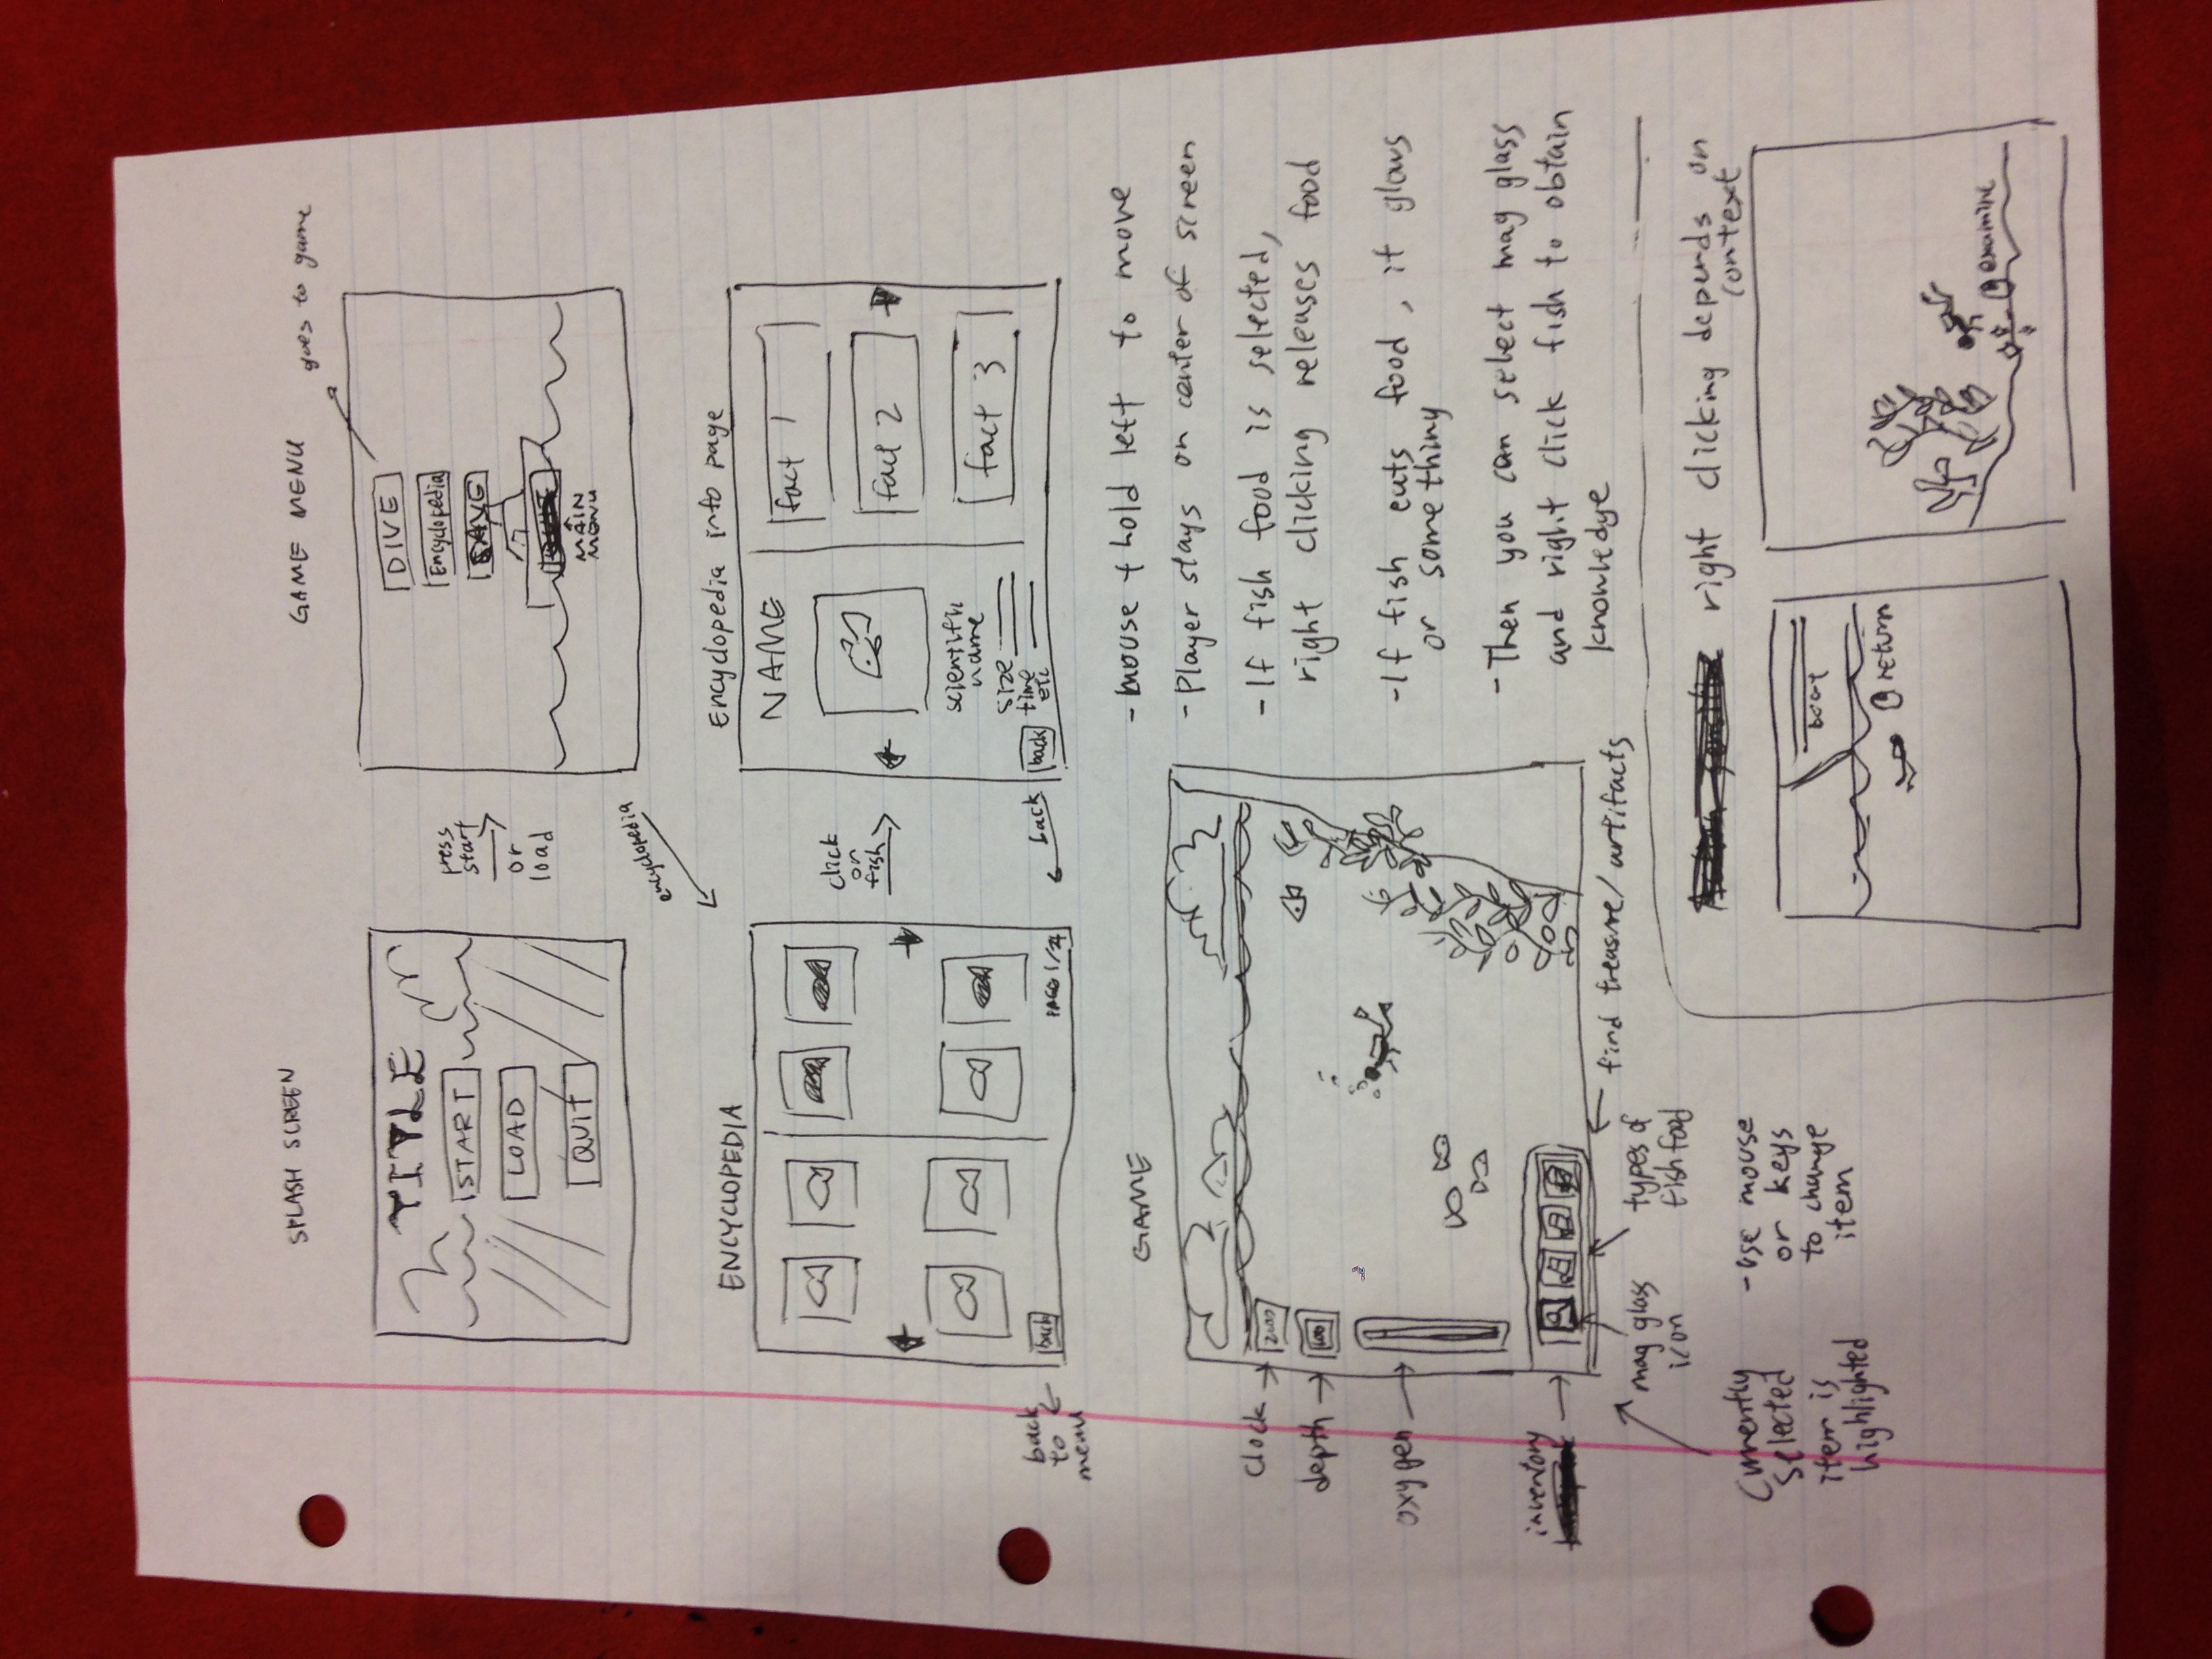 SPLASH SCREEN
TITLE
START
LOAD
QUIT
press
start
or
load
GAME MENU
goes to game
DIVE
Encyclopedia
SAVE
MAIN
MENU
encyclopedia
ENCYCLOPEDIA
back
PAGE 1/24
back
to
menu
click
on
fish
Encyclopedia info page
NAME
scientific
name
size
time
etc
back
fact 1
fact 2
fact 3
back
GAME
clock
depth
oxygen
inventory
2:00
100
mag glass
icon
types of
fish food
find treasure/artifacts
Currently
selected
item is
highlighted
- use mouse
or keys
to change
item
- mouse + hold left to move
- Player stays on center of screen
- If fish food is selected,
right clicking releases food
- If fish eats food, it glows
or something
- Then you can select mag glass
and right click fish to obtain
knowledge
right clicking depends on
context
boat
return
examine